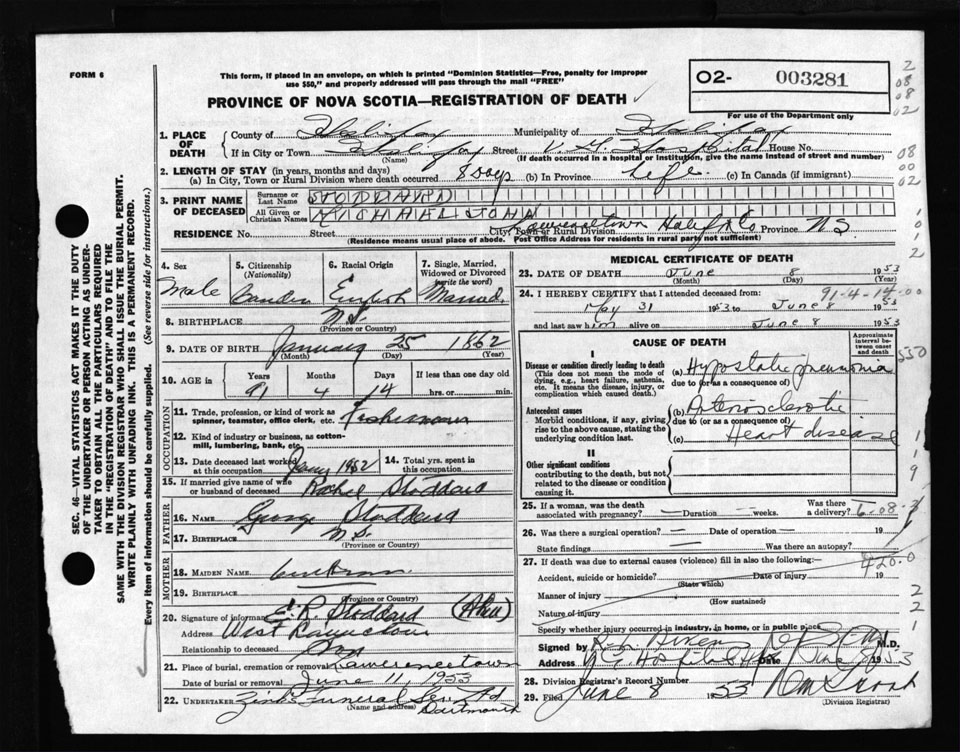 FORM 6
This form, if placed in an envelope, on which is printed "Dominion Statistics—Free, penalty for improper
use $50," and properly addressed will pass through the mail "FREE"
O2- 003281
For use of the Department only
PROVINCE OF NOVA SCOTIA—REGISTRATION OF DEATH
1. PLACE OF DEATH
County of Halifax Municipality of Halifax
If in City or Town Halifax Street V.G. Hospital House No.
(Name) (If death occurred in a hospital or institution, give the name instead of street and number)
2. LENGTH OF STAY (in years, months and days)
(a) In City, Town or Rural Division where death occurred 8 days (b) In Province Life (c) In Canada (if immigrant)
3. PRINT NAME OF DECEASED
Surname or Last Name STODDARD
All Given or Christian Names MICHAEL JOHN
RESIDENCE No. Street City, Town or Rural Division Halifax Co Province N.S.
(Residence means usual place of abode. Post Office Address for residents in rural parts not sufficient)
4. Sex
Male
5. Citizenship
(Nationality)
6. Racial Origin
English
7. Single, Married,
Widowed or Divorced
(write the word)
Married
8. BIRTHPLACE N.S.
(Province or Country)
9. DATE OF BIRTH January 25 1862
(Month) (Day) (Year)
10. AGE in Years Months Days If less than one day old
91 4 14 hrs. or min.
OCCUPATION
11. Trade, profession, or kind of work as
spinner, teamster, office clerk, etc. Fisherman
12. Kind of industry or business, as cotton-
mill, lumbering, bank, etc.
13. Date deceased last worked
at this occupation 1952
14. Total yrs. spent in
this occupation
15. If married give name of wife
or husband of deceased Rachel Stoddard
FATHER
16. NAME George Stoddard
17. BIRTHPLACE N.S.
(Province or Country)
MOTHER
18. MAIDEN NAME unknown
19. BIRTHPLACE
(Province or Country)
20. Signature of informant E. R. Stoddard
Address West
Relationship to deceased Son
21. Place of burial, cremation or removal
Date of burial or removal June 11, 1953
22. UNDERTAKER Zink's Funeral Serv. Ltd
(Name and address) Dartmouth
MEDICAL CERTIFICATE OF DEATH
23. DATE OF DEATH June 8 1953
(Month) (Day)
91-4-14-00
24. I HEREBY CERTIFY that I attended deceased from:
May 31 1953 to June 8 1953
and last saw him alive on June 8 1953
CAUSE OF DEATH
Approximate
interval between
onset
and death
I
Disease or condition directly leading to death
(This does not mean the mode of
dying, e.g., heart failure, asthenia,
etc. It means the disease, injury, or
complication which caused death.)
(a) Hypostatic pneumonia
due to (or as a consequence of)
Antecedent causes
Morbid conditions, if any, giving
rise to the above cause, stating the
underlying condition last.
(b) Arteriosclerotic
due to (or as a consequence of)
(c) Heart disease
II
Other significant conditions
contributing to the death, but not
related to the disease or condition
causing it.
25. If a woman, was the death
associated with pregnancy? — Duration — weeks. Was there a delivery?
26. Was there a surgical operation? — Date of operation — 19
State findings — Was there an autopsy?
27. If death was due to external causes (violence) fill in also the following:
420.0
Accident, suicide or homicide? Date of injury 19
(State which)
Manner of injury
(How sustained)
Nature of injury
Specify whether injury occurred in industry, in home, or in public place
Signed by M.D.
Address V G Hospital Date June 8 1953
28. Division Registrar's Record Number
29. Filed June 8 1953
(Division Registrar)
SEC. 46—VITAL STATISTICS ACT MAKES IT THE DUTY
OF THE UNDERTAKER OR PERSON ACTING AS UNDER-
TAKER TO OBTAIN ALL THE PARTICULARS REQUIRED
IN THE "REGISTRATION OF DEATH" AND TO FILE THE
SAME WITH THE DIVISION REGISTRAR WHO SHALL ISSUE THE BURIAL PERMIT.
WRITE PLAINLY WITH UNFADING INK. THIS IS A PERMANENT RECORD.
Every item of information should be carefully supplied. (See reverse side for instructions.)